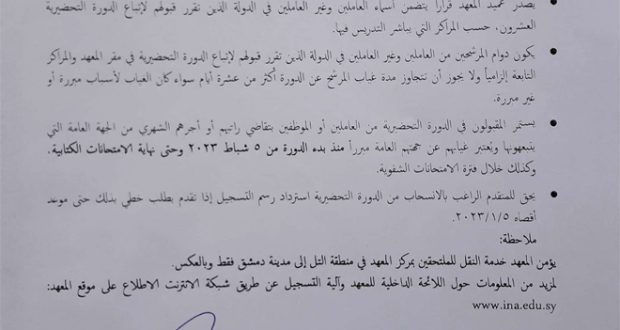 يصدر عميد المعهد قراراً يتضمن أسماء العاملين وغير العاملين في الدولة الذين تقرر قبولهم لإتباع الدورة التحضيرية
العشرون، حسب المراكز التي يباشر التدريس فيها.
يكون دوام المرشحين من العاملين وغير العاملين في الدولة الذين تقرر قبولهم لإتباع الدورة التحضيرية في مقر المعهد والمراكز
التابعة إلزامياً ولا يجوز أن تتجاوز مدة غياب المرشح عن الدورة أكثر من عشرة أيام سواء كان الغياب لأسباب مبررة أو
غير مبررة.
يستمر المقبولون في الدورة التحضيرية من العاملين أو الموظفين بتقاضي راتبهم أو أجرهم الشهري من الجهة العامة التي
يتبعونها ويُعتبر غيابهم عن جهتهم العامة مبرراً منذ بدء الدورة من ٥ شباط ٢٠٢٣ وحتى نهاية الامتحانات الكتابية.
وكذلك خلال فترة الامتحانات الشفوية.
يحق للمتقدم الراغب بالانسحاب من الدورة التحضيرية استرداد رسم التسجيل إذا تقدم بطلب خطي بذلك حتى موعد
أقصاه ٢٠٢٣/١/٥.
ملاحظة:
يؤمن المعهد خدمة النقل للملتحقين بمركز المعهد في منطقة التل إلى مدينة دمشق فقط وبالعكس.
لمزيد من المعلومات حول اللائحة الداخلية للمعهد وآلية التسجيل عن طريق شبكة الانترنت الاطلاع على موقع المعهد:
www.ina.edu.sy